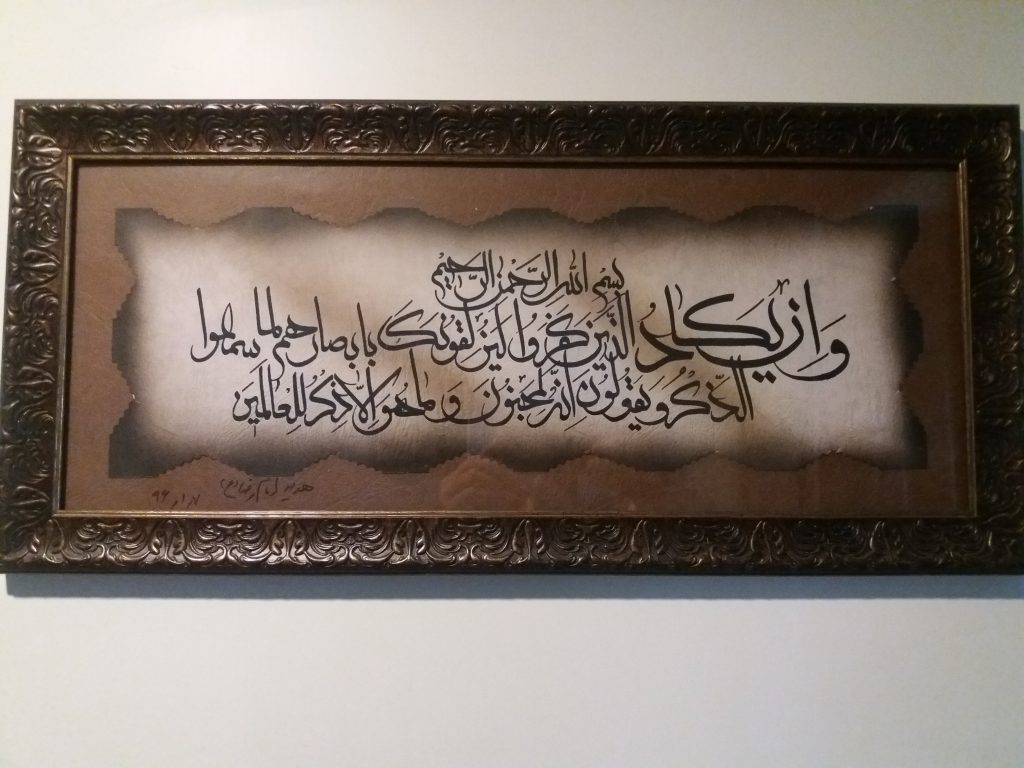 بسم الله الرحمن الرحیم
وان یکاد الذین کفروا لیزلقونک بابصارهم لما سمعوا
الذکر و یقولون انه لمجنون وما هو الا ذکر للعالمین
هدیه امام رضا (ع)